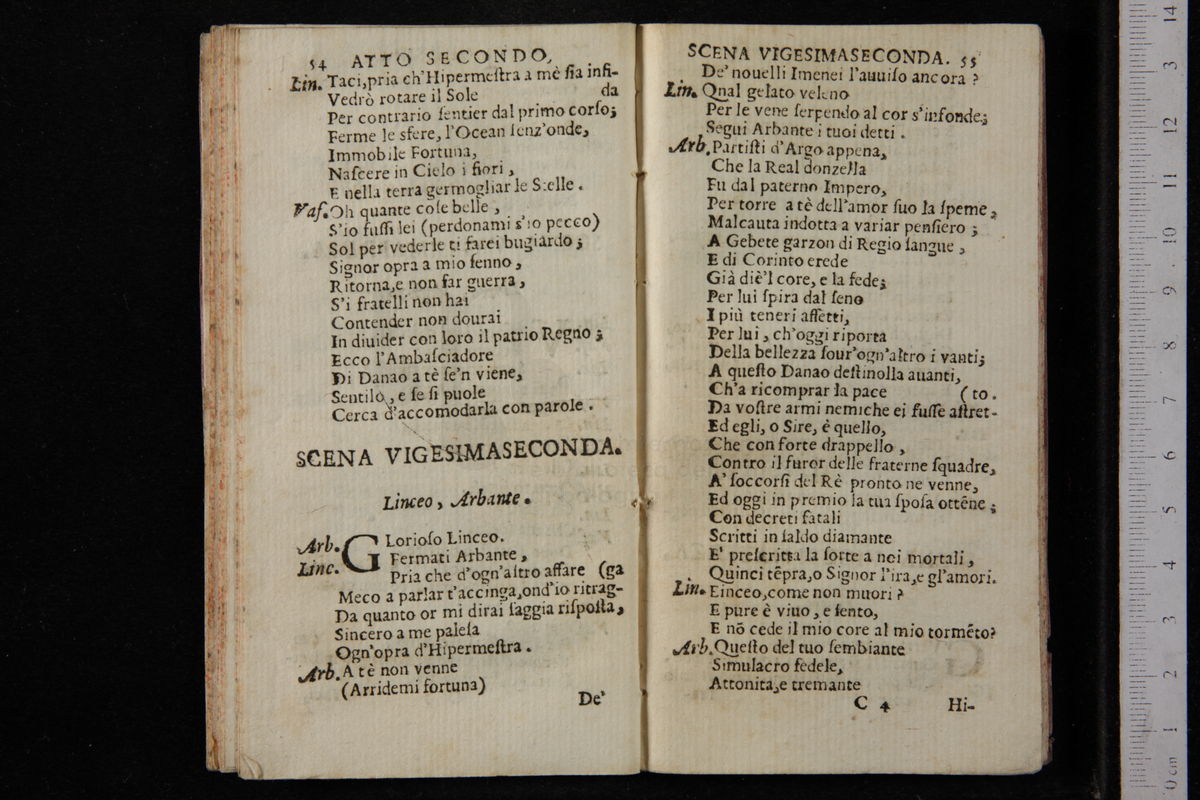 54 ATTO SECONDO,
Lin. Taci,pria ch'Hipermeſtra a mè ſia infi-
Vedrò rotare il Sole da
Per contrario ſentier dal primo corſo;
Ferme le sfere, l'Ocean ſenz'onde,
Immobile Fortuna,
Naſcere in Cielo i fiori,
E nella terra germogliar le Stelle.
Vaſ. Oh quante coſe belle,
S'io fuſſi lei (perdonami s'io pecco)
Sol per vederle ti farei bugiardo;
Signor opra a mio ſenno,
Ritorna,e non far guerra,
S'i fratelli non hai
Contender non dourai
In diuider con loro il patrio Regno;
Ecco l'Ambaſciadore
Di Danao a tè ſe'n viene,
Sentilo, e ſe ſi puole
Cerca d'accomodarla con parole.
SCENA VIGESIMASECONDA.
Linceo, Arbante.
Arb. GLorioſo Linceo.
Linc. Fermati Arbante,
Pria che d'ogn'altro affare (ga
Meco a parlar t'accinga,ond'io ritrag-
Da quanto or mi dirai ſaggia riſpoſta,
Sincero a me paleſa
Ogn'opra d'Hipermeſtra.
Arb. A tè non venne
(Arridemi fortuna)
De'
SCENA VIGESIMASECONDA. 55
De' nouelli Imenei l'auuiſo ancora?
Lin. Qnal gelato veleno
Per le vene ſerpendo al cor s'infonde;
Segui Arbante i tuoi detti.
Arb. Partiſti d'Argo appena,
Che la Real donzella
Fu dal paterno Impero,
Per torre a tè dell'amor ſuo la ſpeme,
Malcauta indotta a variar penſiero;
A Gebete garzon di Regio ſangue,
E di Corinto erede
Già diè'l core, e la fede;
Per lui ſpira dal ſeno
I più teneri affetti,
Per lui, ch'oggi riporta
Della bellezza ſour'ogn'altro i vanti;
A queſto Danao deſtinolla auanti,
Ch'a ricomprar la pace (to.
Da voſtre armi nemiche ei fuſſe aſtret-
Ed egli, o Sire, è quello,
Che con forte drappello,
Contro il furor delle fraterne ſquadre,
A' ſoccorſi del Rè pronto ne venne,
Ed oggi in premio la tua ſpoſa ottēne;
Con decreti fatali
Scritti in ſaldo diamante
E' preſcritta la ſorte a noi mortali,
Quinci tēpra,o Signor l'ira,e gl'amori.
Lin. Linceo,come non muori?
E pure è viuo, e ſento,
E nō cede il mio core al mio tormēto?
Arb. Queſto del tuo ſembiante
Simulacro fedele,
Attonita,e tremante
C 4 Hi-